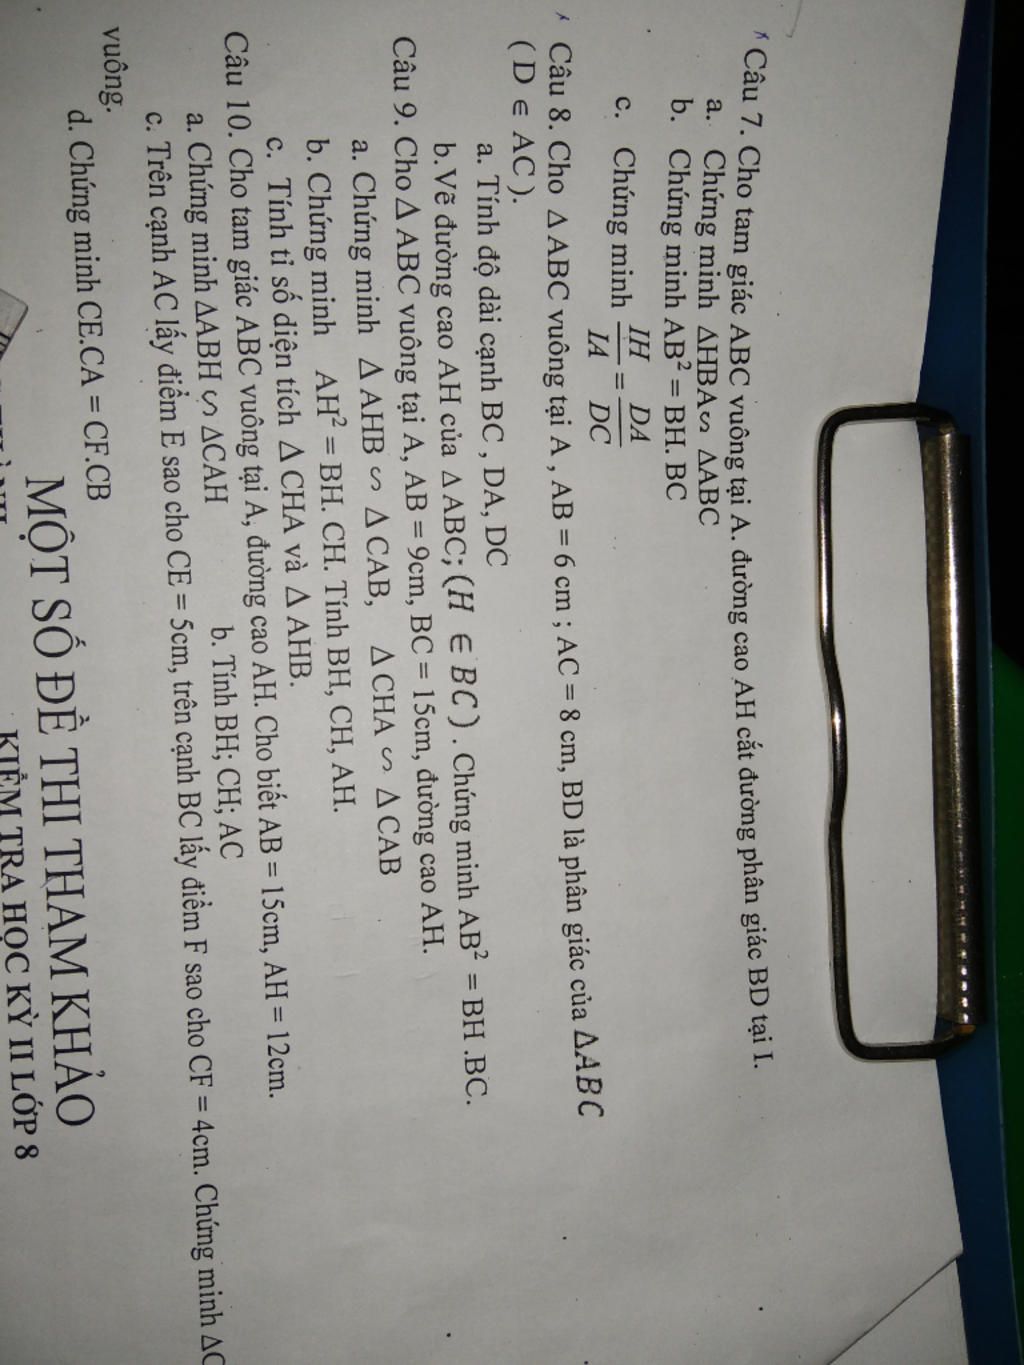 Câu 7. Cho tam giác ABC vuông tại A. đường cao AH cắt đường phân giác BD tại I.
a. Chứng minh ΔHBA∽ ΔABC
b. Chứng minh AB² = BH. BC
c. Chứng minh IH/IA = DA/DC
Câu 8. Cho Δ ABC vuông tại A , AB = 6 cm ; AC = 8 cm, BD là phân giác của ΔABC
( D ∈ AC ).
a. Tính độ dài cạnh BC , DA, DC
b. Vẽ đường cao AH của Δ ABC; (H ∈ BC) . Chứng minh AB² = BH .BC.
Câu 9. Cho Δ ABC vuông tại A, AB = 9cm, BC = 15cm, đường cao AH.
a. Chứng minh Δ AHB ∽ Δ CAB, Δ CHA ∽ Δ CAB
b. Chứng minh AH² = BH. CH. Tính BH, CH, AH.
c. Tính tỉ số diện tích Δ CHA và Δ AHB.
Câu 10. Cho tam giác ABC vuông tại A, đường cao AH. Cho biết AB = 15cm, AH = 12cm.
a. Chứng minh ΔABH ∽ ΔCAH b. Tính BH; CH; AC
c. Trên cạnh AC lấy điểm E sao cho CE = 5cm, trên cạnh BC lấy điểm F sao cho CF = 4cm. Chứng minh ΔC
vuông.
d. Chứng minh CE.CA = CF.CB
MỘT SỐ ĐỀ THI THAM KHẢO
KIỂM TRA HỌC KỲ II LỚP 8